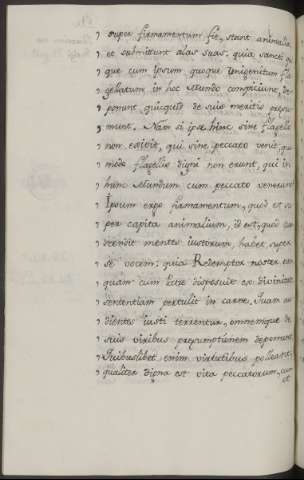 super firmamentum fit, stant animalia,
et submittunt alas suas: quia sancti qui
que cum Ipsum quoque Unigenitum fla
gellatum in hoc Mundo conspiciunt, de
ponunt quicquid de suis meritis presu
munt. Nam si ipse hinc sine flagello
non exibit, qui sine peccato venit, quo
modo flagellis digni non erunt, qui in
hunc Mundum cum peccato venerunt
Ipsum ergo firmamentum, quod est su
per capita animalium, id est, quod tran
scendit mentes iustorum, habet super
se vocem: quia Redemptor noster
quam cum Patre disposuit ex divinitate
sententiam pertulit in carne, Quam au
dientes iusti terrentur, omnemque de
suis viribus presumptionem deponunt.
Quibuslibet enim virtutibus polleant,
qualiter digna est vita peccatorum, cum
et